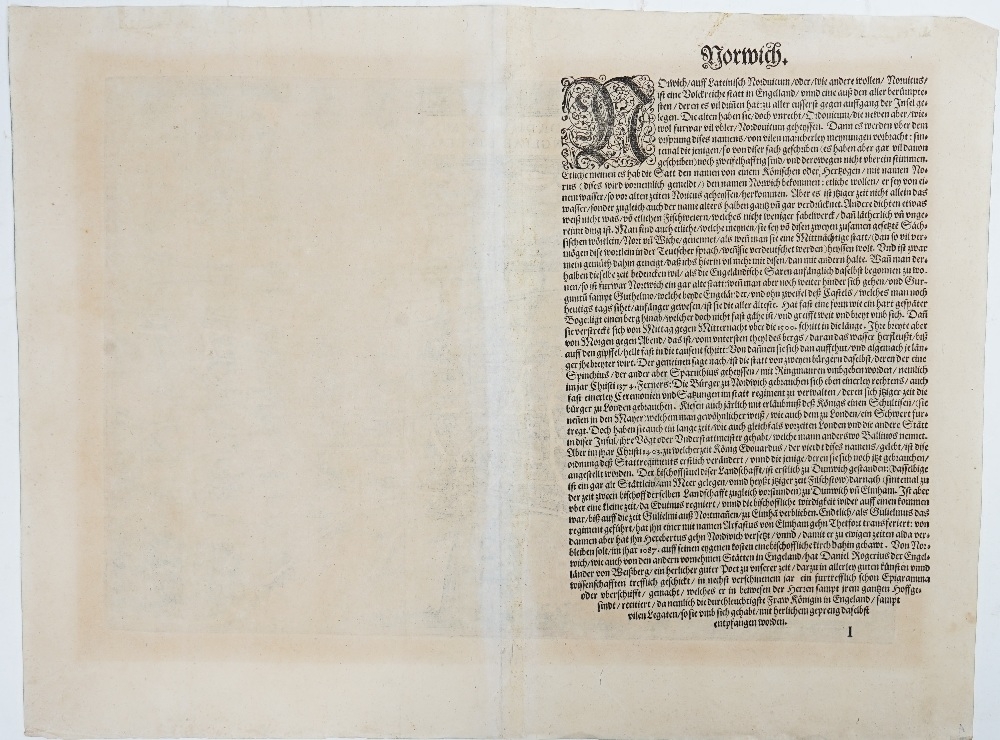 Norwich.
NOrwich/auff Lateinisch Nordvicum/oder/wie andere wollen/ Novicus/
ist eine Volckreiche statt in Engelland/ vnnd eine auß den aller berümpte-
sten/ deren es vil drinen hat: zu aller eusserst gegen auffgang der Insel ge-
legen. Die alten haben sie/doch vnrecht/ Ordovicum/die newen aber/wie-
wol furwar vil vbler/ Nordovicum geheyssen. Dann es werden vber dem
vrsprung dises namens/von vilen mancherley meynungen vorbracht: sin-
temal die jenigen/so von diser sach geschriben (es haben aber gar vil dauon
geschriben) noch zweifelhafftig sind/vnd derowegen nicht vberein stimmen.
Etliche meinen es hab die Statt den namen von einem Könischen oder Hertzogen/ mit namen No-
rus (dises wird vornemlich gemeldt) den namen Norwich bekommen: etliche wollen/ er sey von ei-
nem wasser/so vor alten zeiten Novicus geheyssen/herkommen. Aber es ist jtziger zeit nicht allein das
wasser/sonder zugleich auch der name alters halben gantz vñ gar verdrücknet. Andere dichten etwas
weiß nicht was/võ etlichen Fischweiern/welches nicht weniger fabelwerck/dañ lächerlich vñ vnge-
reimt ding ist. Man find auch etliche/welche meynen/sie sey võ disen zweyen zusamen gesetzte Säch-
sischen wörtlein/Nort vñ Wiche/genennet/als weñ man sie eine Mitternächtige statt/(dan so vil ver-
mögen dise wortlein in der Teutscher sprach/weñ sie verdeutschet werden) heyssen wolt. Vnd ist zwar
mein gemüth dahin geneigt/daß ichs hierin vil mehr mit disen/dan mit andern halte. Wañ man der-
halben dieselbe zeit bedencken wil/ als die Engeländische Saxen anfänglich daselbst begonnen zu wo-
nen/so ist furwar Nortwich ein gar alte statt: weñ man aber noch weiter hinder sich gehen/ vnd Gur-
guntũ sampt Guthelino/welche beyde Engeländer/vnd ohn zweifel deß Castels/ welches man noch
heutigs tags sihet/anfänger gewesen/ist sie die aller älteste. Hat fast eine form wie ein hart gespäter
Boge: ligt einen berg hinab/welcher doch nicht fast gähe ist/ vnd greifft weit vnd breyt vmb sich. Dañ
sie verstreckt sich von Mittag gegen Mitternacht vber die 1500. schritt in die länge. Ihre breyte aber
von Morgen gegen Abend/das ist/vom vntersten theyl des bergs/ daran das wasser herfleußt/biß
auff den gipffel/helt fast in die tausent schritt: Von dannen sie sich dan auffthut/vnd algemach je län-
ger jhe breyter wirt. Der gemeinen sage nach/ist die statt von zweyen bürgern daselbst/deren der eine
Spinchius/der ander aber Sparuchius geheyssen/ mit Ringmauren vmbgeben worden/ nemlich
im jar Christi 1374. Ferners: Die Bürger zu Nordwich gebrauchen sich eben einerley rechtens/ auch
fast einerley Ceremonien vnd Satzungen im statt regiment zu verwalten/ deren sich jtziger zeit die
bürger zu Londen gebrauchen. Kiesen auch järlich mit erlaubnuß deß Königs einen Schultissen/(sie
neñen in den Mayer) welchem man gewöhnlicher weiß/ wie auch dem zu Londen/ein Schwert fur-
tregt. Doch haben sie auch ein lange zeit/wie auch gleichfals vorzeiten Londen vnd die andere Stätt
in diser Insul/ihre Vögt oder Vnderstattmeister gehabt/ welche mann anderswo Ballivos nennet.
Aber im jhar Christi 1403. zu welcher zeit König Edouardus/ der vierdt dises namens/gelebt/ist dise
ordnung deß Stattregiments erstlich verändert/ vnnd die jenige/deren sie sich noch jtzt gebrauchen/
angestellt worden. Der bischoffstuel diser Landschafft/ist erstlich zu Dunwich gestanden: (dasselbige
ist ein gar alt Stättlein/am Meer gelegen/vnnd heyßt jtziger zeit Filschstow) darnach (sintemal zu
der zeit zween bischoff derselben Landschafft zugleich vorstunden) zu Dunwich vñ Elmham. Ist aber
vber eine kleine zeit/da Edvinus regniert/ vnnd die bischoffliche wirdigkeit wider auff einen kommen
war/biß auff die zeit Gulielmi auß Nortmañen/zu Elmhã verblieben. Endtlich/als Gulielmus das
regiment geführt/hat ihn einer mit namen Arfastus von Elmham gehn Thetfort transferiert: von
dannen aber hat ihn Herebertus gehn Nordwich versetzt/ vnnd/ damit er zu ewigen zeiten alda ver-
bleiben solt/im jhar 1087. auff seinen eygenen kosten eine bischoffliche kirch dahin gebawt. Von Nor-
wich/wie auch von den andern vornehmen Stätten in Engeland/hat Daniel Rogerius der Engel-
länder von Weißberg/ein herlicher guter Poet zu vnserer zeit/darzu in allerley guten künsten vnnd
wissenschafften trefflich geschickt/ in nechst verschinenem jar ein furtrefflich schon Epigramma
oder vberschrifft/ gemacht/ welches er in beywesen der Herzen sampt jrem gantzen Hoffge-
sindt/ recitiert/da nemlich die durchleuchtigste Fraw Königin in Engeland/ sampt
vilen Legaten/so sie vmb sich gehabt/mit herlichem gepreng daselbst
entpfangen worden.
I